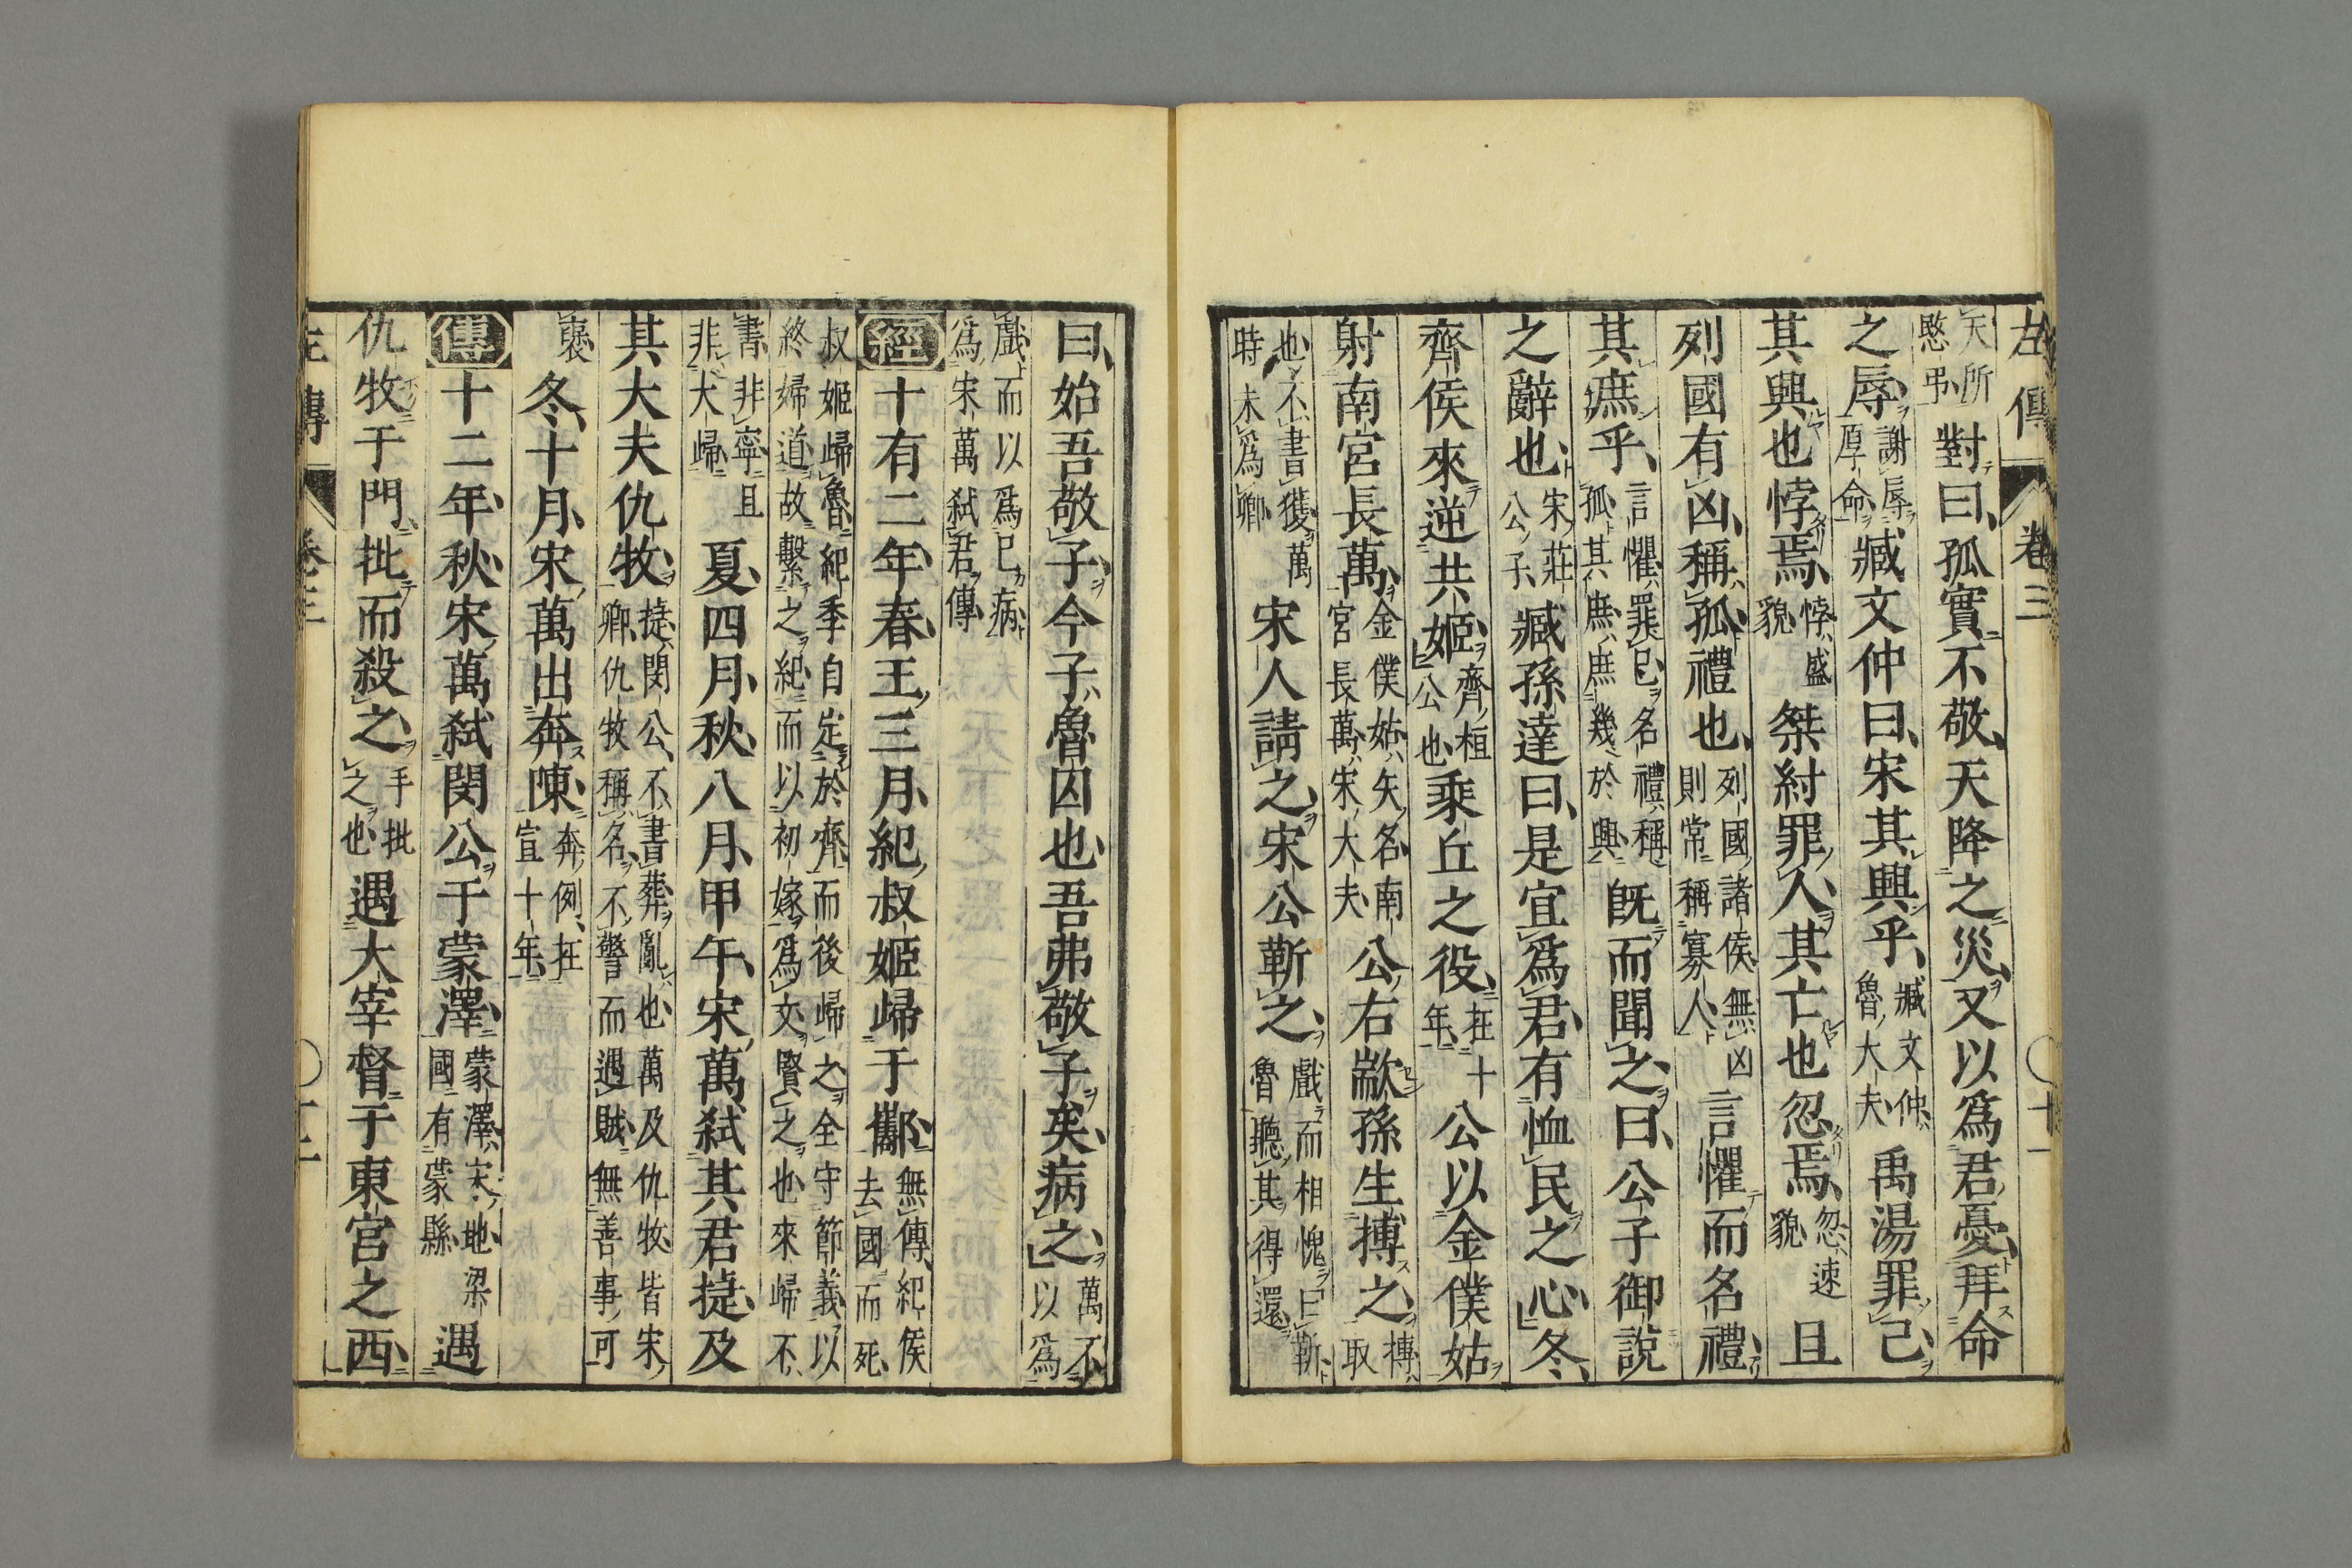 左傳 卷三 十一
天所愍弔對曰孤實不敬天降之災又以爲君憂拜命
之辱謝辱厚命臧文仲曰宋其興乎臧文仲魯大夫禹湯罪己
其興也悖焉悖盛貌桀紂罪人其亡也忽焉忽速貌且
列國有凶稱孤禮也列國諸侯無凶則常稱寡人言懼而名禮
其庶乎言懼罪己名禮稱孤其庶庶幾於興既而聞之曰公子御說
之辭也宋莊公子臧孫達曰是宜爲君有恤民之心冬
齊侯來逆共姬齊桓公也乘丘之役在十年公以金僕姑
射南宮長萬金僕姑矢名南宮長萬宋大夫公右歂孫生搏之搏取
也不書獲萬時未爲卿宋人請之宋公靳之戲而相愧曰靳魯聽其得還
曰始吾敬子今子魯囚也吾弗敬子矣病之萬不以爲
戲而以爲已病爲宋萬弒君傳
經十有二年春王三月紀叔姬歸于酅無傳紀侯去國而死
叔姬歸魯紀季自定於齊而後歸之全守節義以終婦道故繫之紀而以初嫁爲文賢之也來歸不
書非寧且非大歸夏四月秋八月甲午宋萬弒其君捷及
其大夫仇牧捷閔公不書葬亂也萬及仇牧皆宋卿仇牧稱名不警而遇賊無善事可
褒冬十月宋萬出奔陳奔例在宣十年
傳十二年秋宋萬弒閔公于蒙澤蒙澤宋地梁國有蒙縣遇
仇牧于門批而殺之手批之也遇大宰督于東宮之西
左傳 卷三